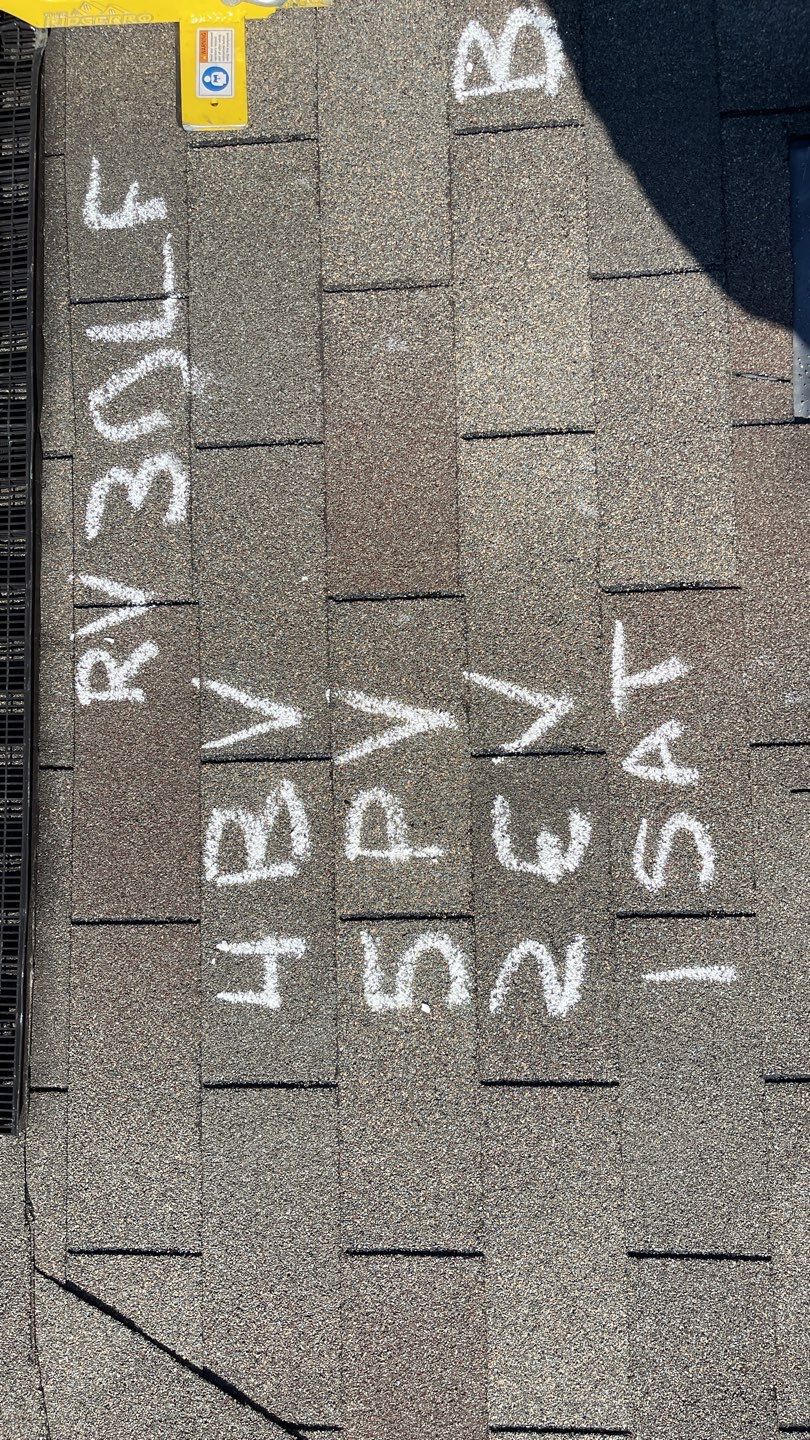 RV 30LF
4 BV
5 PV
2 EV B
1 SAT